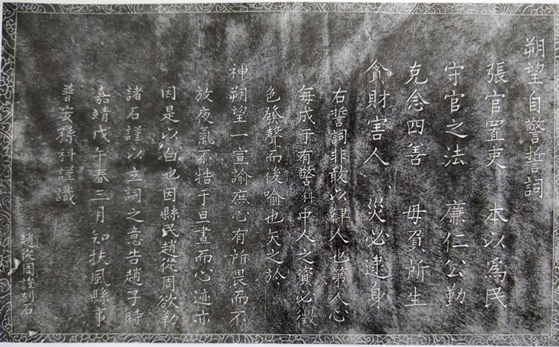 朔望自警誓詞
張官置吏 本以爲民
守官之法 廉仁公勤
克念四善 毋負所生
貪財害人 災必逮身
右誓詞非敢以律人也第人心
每成于有警科中人之資必徵
色發聲而後喻也矢之於
神朔望一宣諭庶心有所畏而不
放夜氣不牿于旦晝而心迹亦
因是以白也因縣民趙從周欲勒
諸石謹以立詞之意告趙子時
嘉靖戊午春三月知扶風縣事
普安孫科謹識
趙從周謹刻石